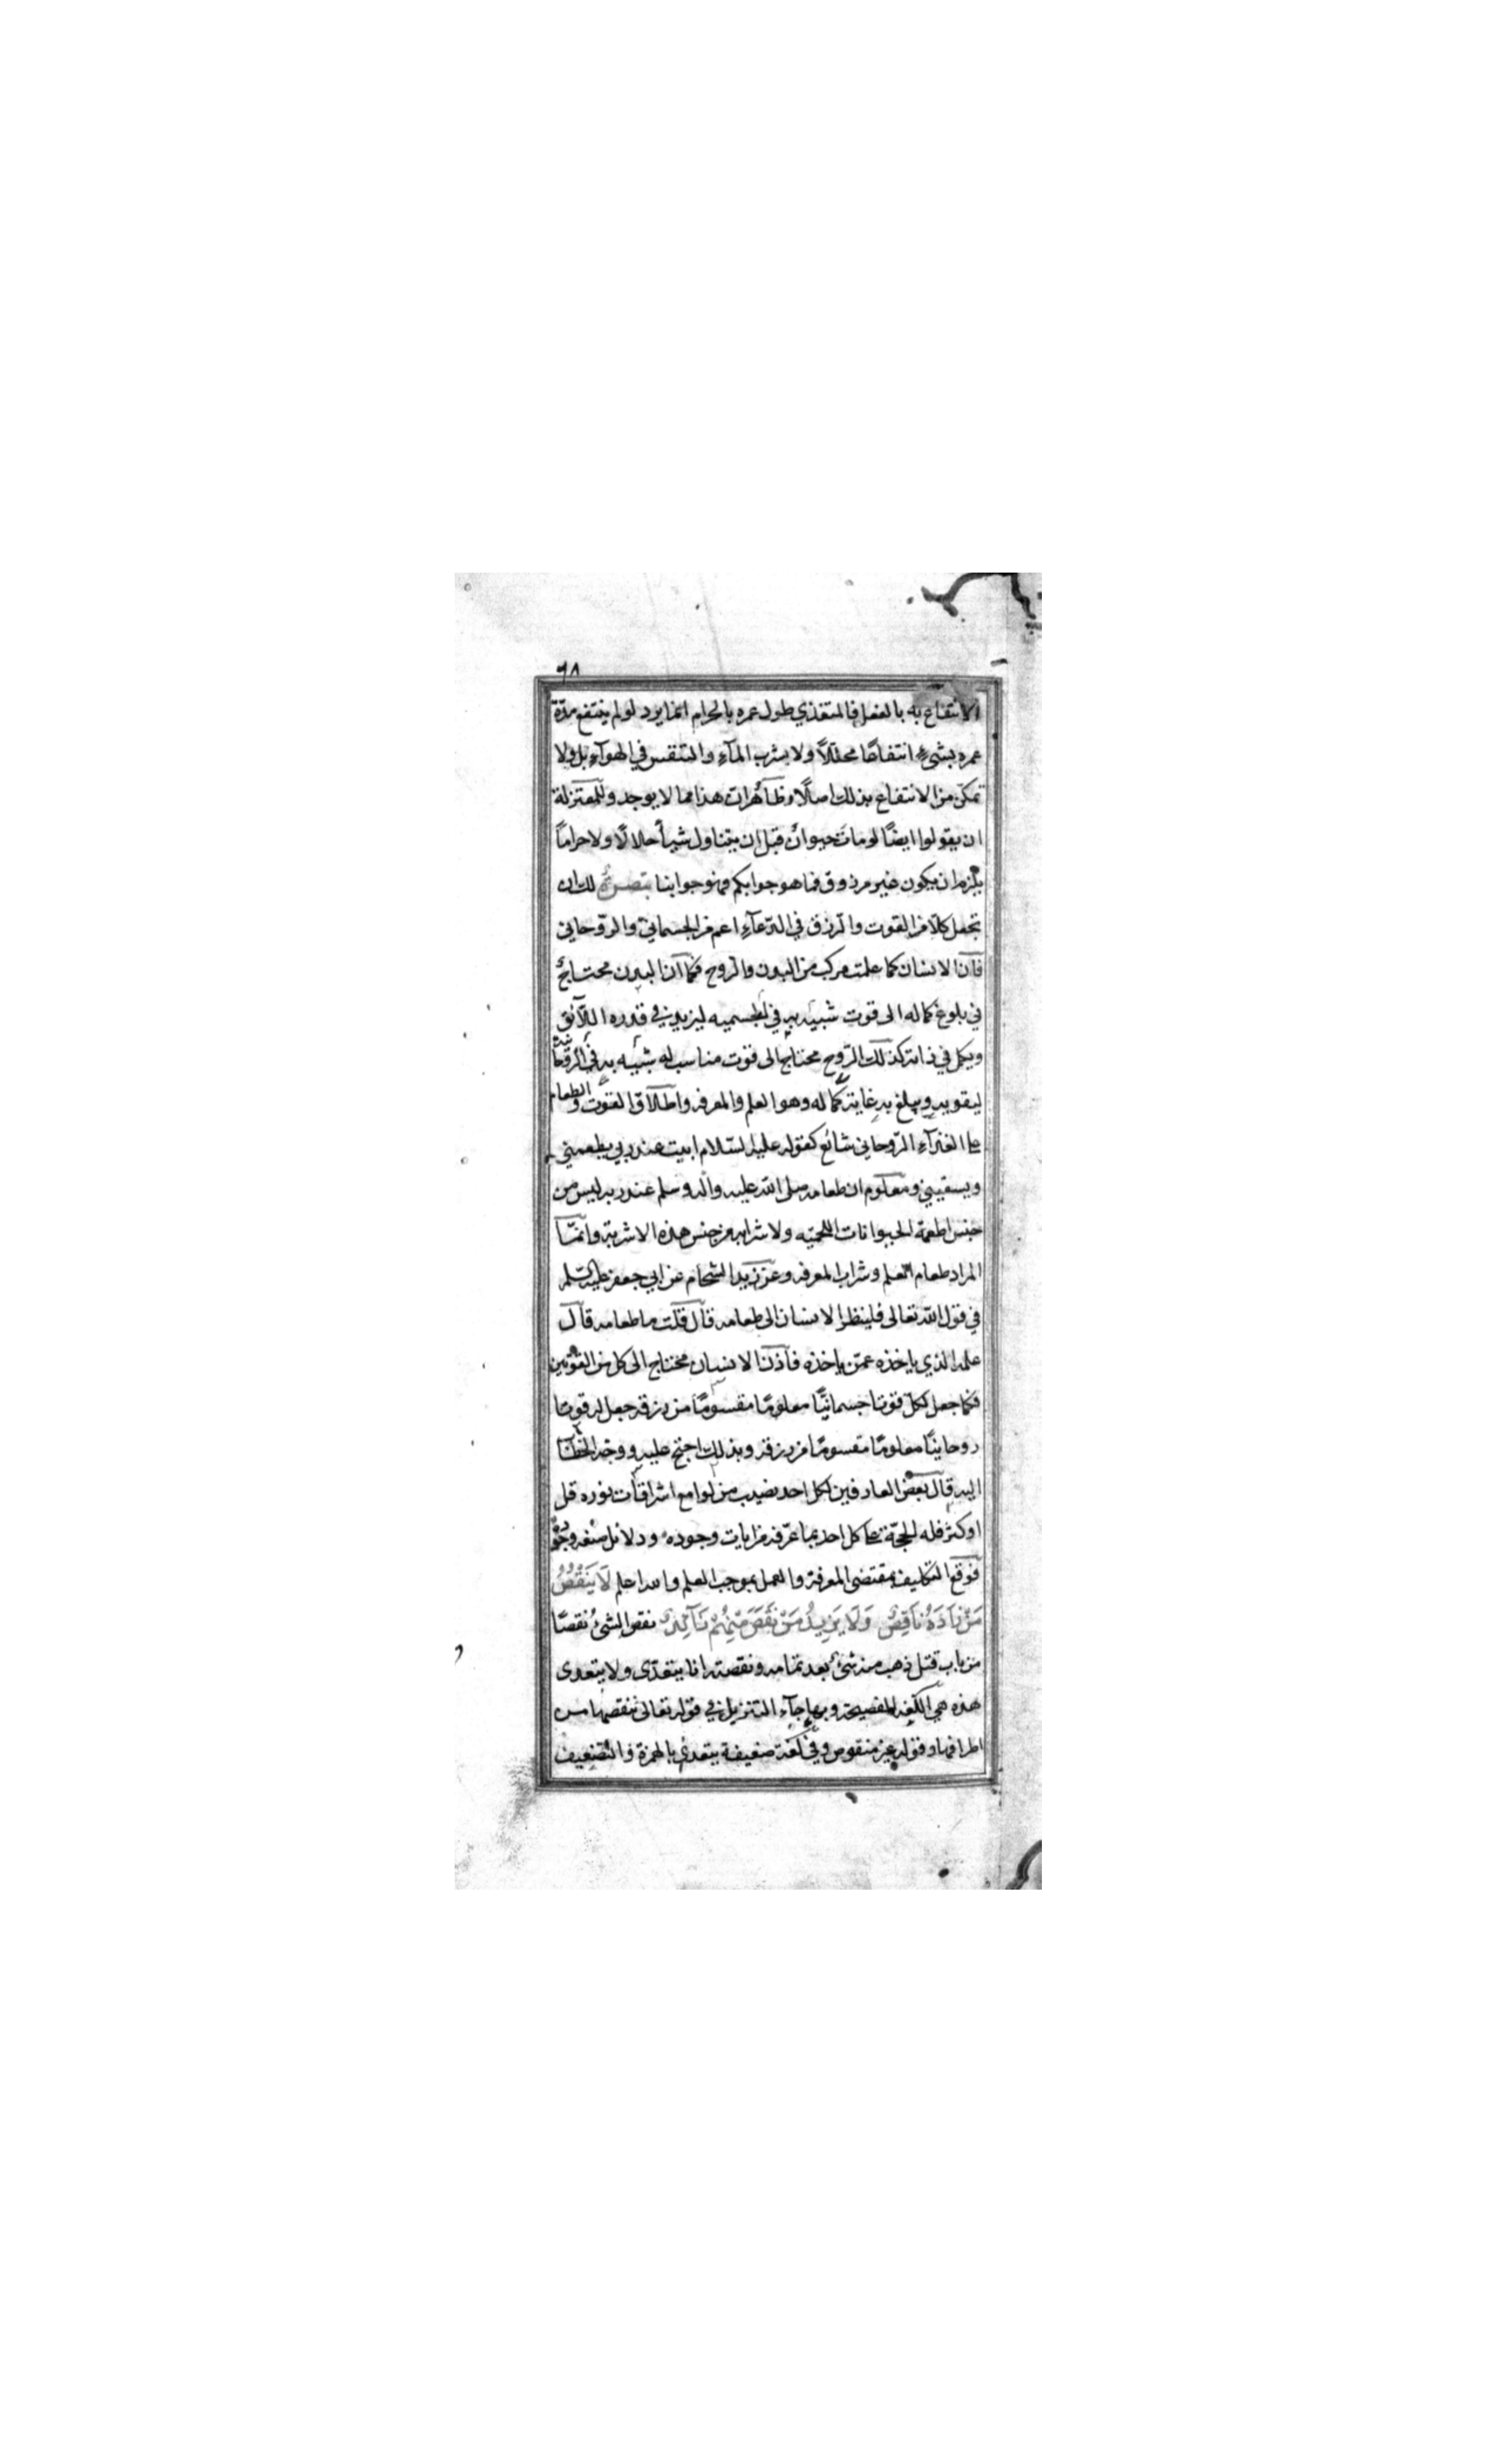 ٦٨
الانتفاع به بالفعل فالمتغذي طول عمره بالحرام انما يرد لو لم ينتفع مدّة
عمره بشئ انتفاعًا محلّلاً ولا بشرب المآء والتنفس في الهوآء بل ولا
تمكن من الانتفاع بذلك اصلًا وظاهر ان هذا مما لا يوجد وللمعتزلة
ان يقولوا ايضًا لو مات حيوان قبل ان يتناول شيأ حلالًا ولا حراماً
يلزم ان يكون غير مرزوق فما هو جوابكم فهو جوابنا تبصرة لك ان
تجعل كلّا من القوت والرزق في الدّعآء اعم من الجسماني والروحاني
فانّ الانسان كما علمت مركب من البدن والروح فكما انّ البدن محتاج
في بلوغ كماله الى قوت شبيه به في الجسميه ليزيد في قدره اللّآئق
ويكمل في ذاته كذلك الرّوح محتاج الى قوت مناسب له شبيه به في الرّوحانية
ليقو به ويبلغ به غاية كماله وهو العلم والمعرفه واطلاق القوت والطعام
على الغذآء الرّوحاني شائع كقوله عليه السّلام ابيت عند ربي يطعمني
ويسقيني ومعلوم ان طعامه صلى الله عليه واله وسلم عند ربه ليس من
جنس اطعمة الحيوانات اللحميّه ولا شرابه من جنس هذه الاشربة وانّما
المراد طعام العلم وشراب المعرفه وعن زيد الشحام عن ابي جعفر عليه السّلم
في قول الله تعالى فلينظر الانسان الى طعامه قال قلت ما طعامه قال
علمه الذي ياخذه عمّن ياخذه فاذن الانسان محتاج الى كل من القوتين
فكما جعل لكل قوتا جسمانيًّا معلومًا مقسومًا من رزقه جعل له قوتا
روحانيًا معلومًا مقسومًا من رزقه وبذلك احتج عليه ووجّه الخطاب
اليه قال بعض العارفين لكل احد نصيب من لوامع اشراقات نوره قل
او كثر فله الحجّة على كل احد بما عرّفه من ايات وجوده ودلائل صنعه وجوده
فوقع التكليف بمقتضى المعرفة والعمل بموجب العلم والله اعلم لَا يَنْقُصُ
مَنْ زَادَهُ نَاقِصٌ وَلَا يَزِيدُ مَنْ نَقَصَ مِنْهُمْ زَآئِدٌ نقص الشئ نقصًا
من باب قتل ذهب منه شئ بعد تمامه ونقصته انا يتعدّى ولا يتعدى
هذه هي اللّغه الفصيحة وبها جآء التنزيل في قوله تعالى ننقصها من
اطرافها وقوله غير منقوص وفي لغة ضعيفة يتعدى بالهمزة والتضعيف